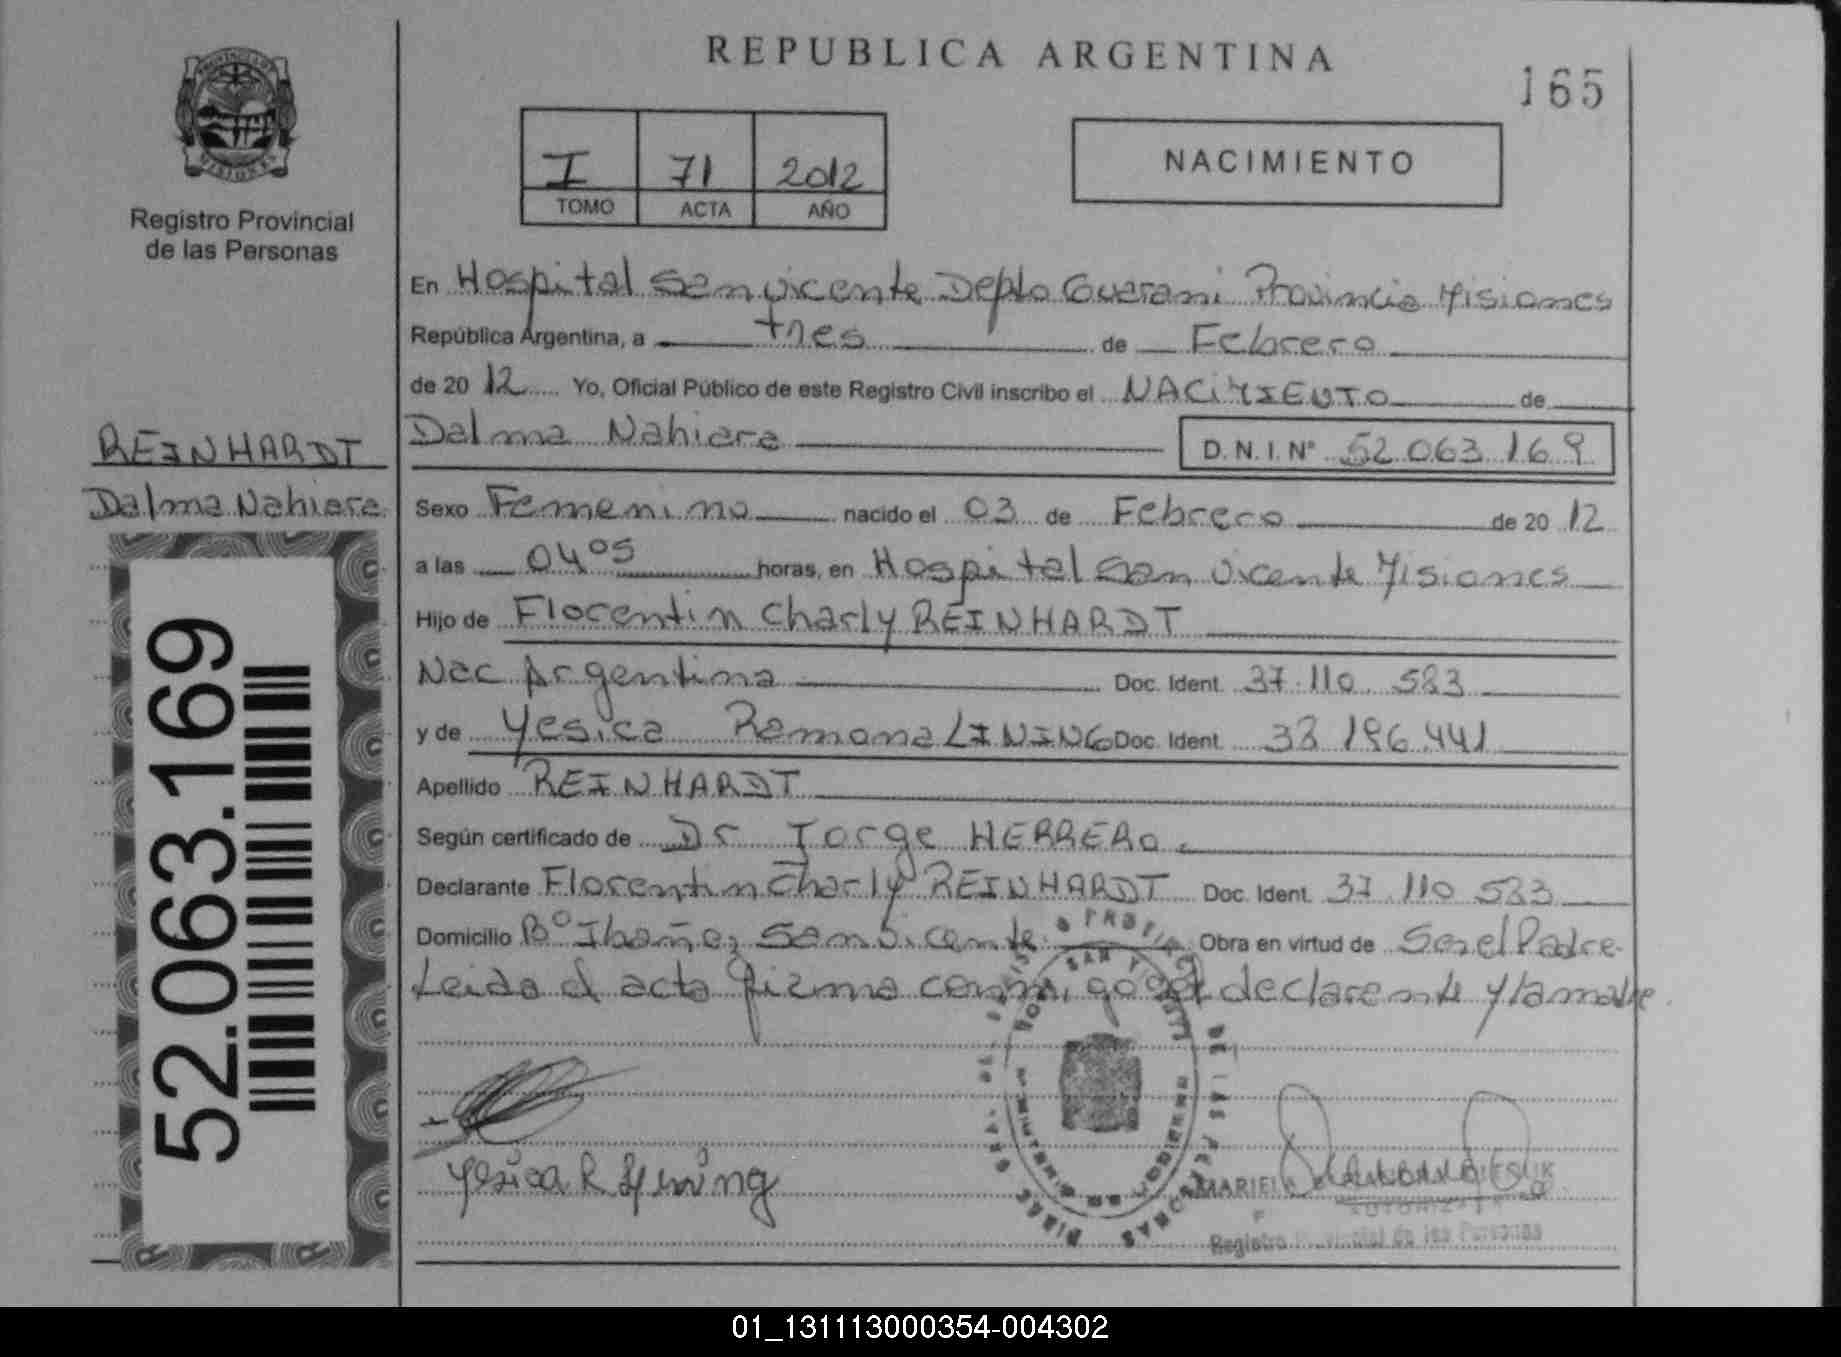 REPUBLICA ARGENTINA
165
PROVINCIA DE
MISIONES
Registro Provincial
de las Personas
I 71 2012
TOMO ACTA AÑO
NACIMIENTO
En Hospital San Vicente Depto Guarani Provincia Misiones
República Argentina, a tres de Febrero
de 20 12 Yo, Oficial Público de este Registro Civil inscribo el NACIMIENTO de
Dalma Nahiara D.N.I. Nº 52.063.169
REINHARDT
Dalma Nahiara
Sexo Femenino nacido el 03 de Febrero de 20 12
a las 04 05 horas, en Hospital San Vicente Misiones
Hijo de Florentin Charly REINHARDT
Nac Argentina Doc. Ident. 37.110.583
y de Yesica Ramona LINING Doc. Ident. 38 196.441
Apellido REINHARDT
Según certificado de Dr Jorge HERRERO.
Declarante Florentin Charly REINHARDT Doc. Ident. 37.110 583
Domicilio Bº Ibañez San Vicente Obra en virtud de Ser el Padre
Leida el acta firma conmigo el declarante y la madre
52.063.169
Yesica R
MARIEL
Registro Provincial de las Personas
01_131113000354-004302